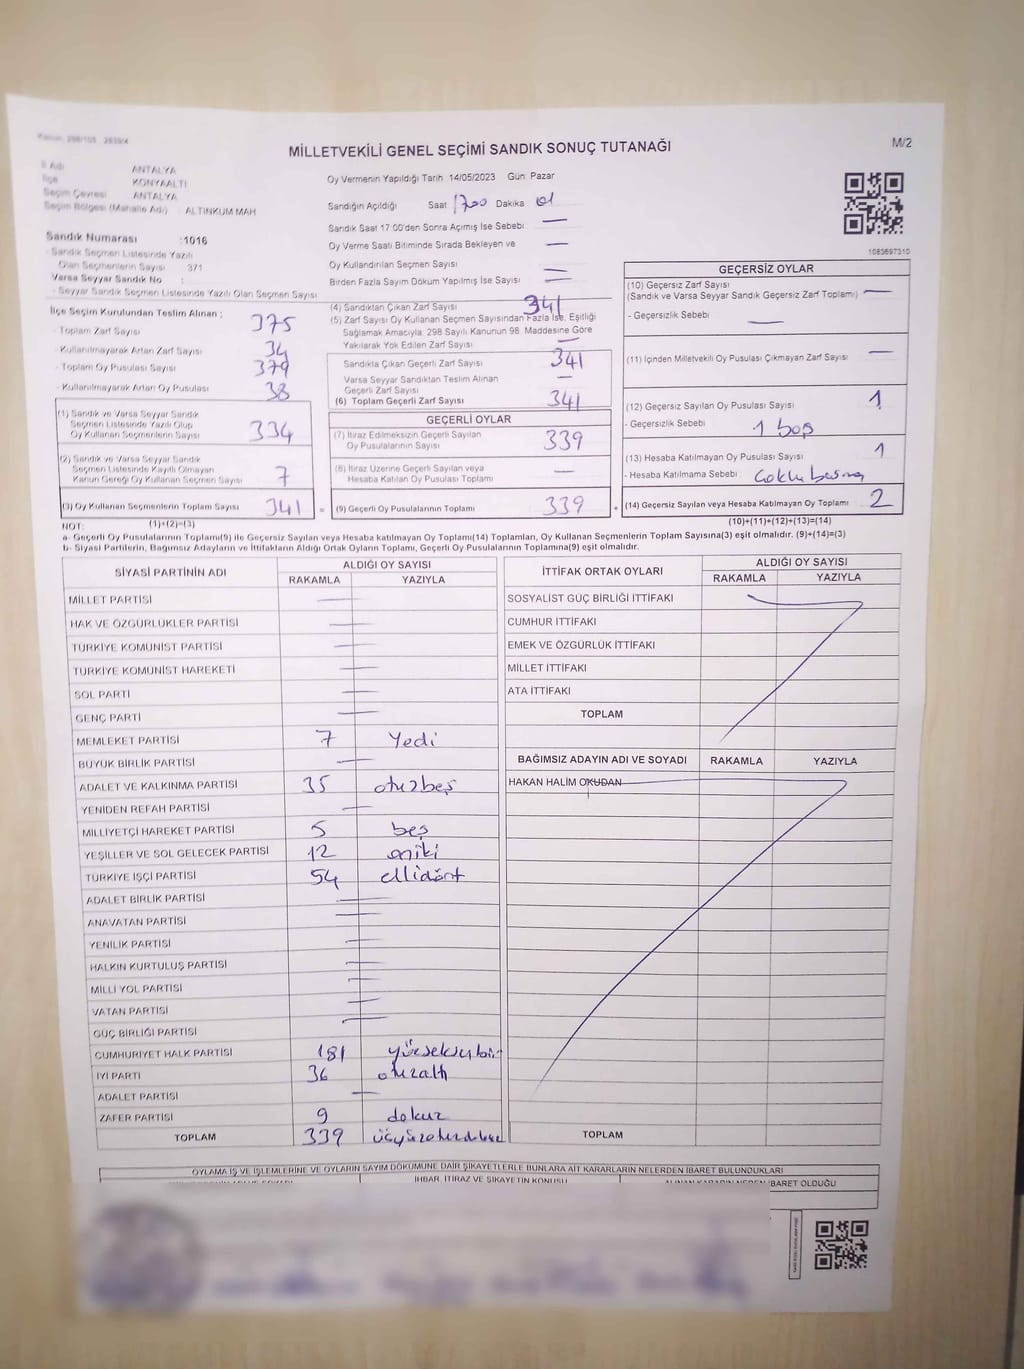 M/2
MİLLETVEKİLİ GENEL SEÇİMİ SANDIK SONUÇ TUTANAĞI
İl Adı ANTALYA
İlçe KONYAALTI
Seçim Çevresi ANTALYA
Seçim Bölgesi (Mahalle Adı) : ALTINKUM MAH
Sandık Numarası :1016
- Sandık Seçmen Listesinde Yazılı
Olan Seçmenlerin Sayısı 371
Varsa Seyyar Sandık No :
- Seyyar Sandık Seçmen Listesinde Yazılı Olan Seçmen Sayısı
Oy Vermenin Yapıldığı Tarih 14/05/2023 Gün: Pazar
Sandığın Açıldığı Saat 1700 Dakika 01
Sandık Saat 17:00'den Sonra Açımış İse Sebebi —
Oy Verme Saati Bitiminde Sırada Bekleyen ve —
Oy Kullandırılan Seçmen Sayısı
Birden Fazla Sayım Döküm Yapılmış İse Sayısı —
1083697310
İlçe Seçim Kurulundan Teslim Alınan ;
- Toplam Zarf Sayısı 375
- Kullanılmayarak Artan Zarf Sayısı 34
- Toplam Oy Pusulası Sayısı 379
- Kullanılmayarak Artan Oy Pusulası 38
(1) Sandık ve Varsa Seyyar Sandık
Seçmen Listesinde Yazılı Olup
Oy Kullanan Seçmenlerin Sayısı 334
(2) Sandık ve Varsa Seyyar Sandık
Seçmen Listesinde Kayıtlı Olmayan
Kanun Gereği Oy Kullanan Seçmen Sayısı 7
(3) Oy Kullanan Seçmenlerin Toplam Sayısı 341 =
(1)+(2)=(3)
(4) Sandıktan Çıkan Zarf Sayısı 341
(5) Zarf Sayısı Oy Kullanan Seçmen Sayısından Fazla İse, Eşitliği
Sağlamak Amacıyla; 298 Sayılı Kanunun 98. Maddesine Göre
Yakılarak Yok Edilen Zarf Sayısı —
Sandıkta Çıkan Geçerli Zarf Sayısı 341
Varsa Seyyar Sandıktan Teslim Alınan
Geçerli Zarf Sayısı —
(6) Toplam Geçerli Zarf Sayısı 341
GEÇERLİ OYLAR
(7) İtiraz Edilmeksizin Geçerli Sayılan
Oy Pusulalarının Sayısı 339
(8) İtiraz Üzerine Geçerli Sayılan veya
Hesaba Katılan Oy Pusulası Toplamı —
(9) Geçerli Oy Pusulalarının Toplamı 339 +
GEÇERSİZ OYLAR
(10) Geçersiz Zarf Sayısı
(Sandık ve Varsa Seyyar Sandık Geçersiz Zarf Toplamı) —
- Geçersizlik Sebebi —
(11) İçinden Milletvekili Oy Pusulası Çıkmayan Zarf Sayısı —
(12) Geçersiz Sayılan Oy Pusulası Sayısı 1
- Geçersizlik Sebebi 1 boş
(13) Hesaba Katılmayan Oy Pusulası Sayısı 1
- Hesaba Katılmama Sebebi Çoklu basma
(14) Geçersiz Sayılan veya Hesaba Katılmayan Oy Toplamı 2
(10)+(11)+(12)+(13)=(14)
NOT:
a- Geçerli Oy Pusulalarının Toplamı(9) ile Geçersiz Sayılan veya Hesaba katılmayan Oy Toplamı(14) Toplamları, Oy Kullanan Seçmenlerin Toplam Sayısına(3) eşit olmalıdır. (9)+(14)=(3)
b- Siyasi Partilerin, Bağımsız Adayların ve İttifakların Aldığı Ortak Oyların Toplamı, Geçerli Oy Pusulalarının Toplamına(9) eşit olmalıdır.
SİYASİ PARTİNİN ADI ALDIĞI OY SAYISI
RAKAMLA YAZIYLA
MİLLET PARTİSİ —
HAK VE ÖZGÜRLÜKLER PARTİSİ —
TÜRKİYE KOMÜNİST PARTİSİ —
TÜRKİYE KOMÜNİST HAREKETİ —
SOL PARTİ —
GENÇ PARTİ —
MEMLEKET PARTİSİ 7 Yedi
BÜYÜK BİRLİK PARTİSİ —
ADALET VE KALKINMA PARTİSİ 35 otuzbeş
YENİDEN REFAH PARTİSİ —
MİLLİYETÇİ HAREKET PARTİSİ 5 beş
YEŞİLLER VE SOL GELECEK PARTİSİ 12 oniki
TÜRKİYE İŞÇİ PARTİSİ 54 ellidört
ADALET BİRLİK PARTİSİ —
ANAVATAN PARTİSİ —
YENİLİK PARTİSİ —
HALKIN KURTULUŞ PARTİSİ —
MİLLİ YOL PARTİSİ —
VATAN PARTİSİ —
GÜÇ BİRLİĞİ PARTİSİ —
CUMHURİYET HALK PARTİSİ 181 yüzseksenbir
İYİ PARTİ 36 otuzaltı
ADALET PARTİSİ —
ZAFER PARTİSİ 9 dokuz
TOPLAM 339 üçyüzotuzdokuz
İTTİFAK ORTAK OYLARI ALDIĞI OY SAYISI
RAKAMLA YAZIYLA
SOSYALİST GÜÇ BİRLİĞİ İTTİFAKI
CUMHUR İTTİFAKI
EMEK VE ÖZGÜRLÜK İTTİFAKI
MİLLET İTTİFAKI
ATA İTTİFAKI
TOPLAM
BAĞIMSIZ ADAYIN ADI VE SOYADI RAKAMLA YAZIYLA
HAKAN HALİM OKUDAN
TOPLAM
OYLAMA İŞ VE İŞLEMLERİNE VE OYLARIN SAYIM DÖKÜMÜNE DAİR ŞİKAYETLERLE BUNLARA AİT KARARLARIN NELERDEN İBARET BULUNDUKLARI
İHBAR, İTİRAZ VE ŞİKAYETİN KONUSU
İBARET OLDUĞU